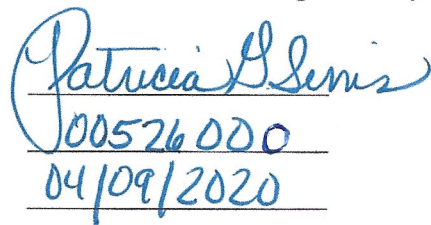 Patricia G. Sennis
00526000
04/09/2020